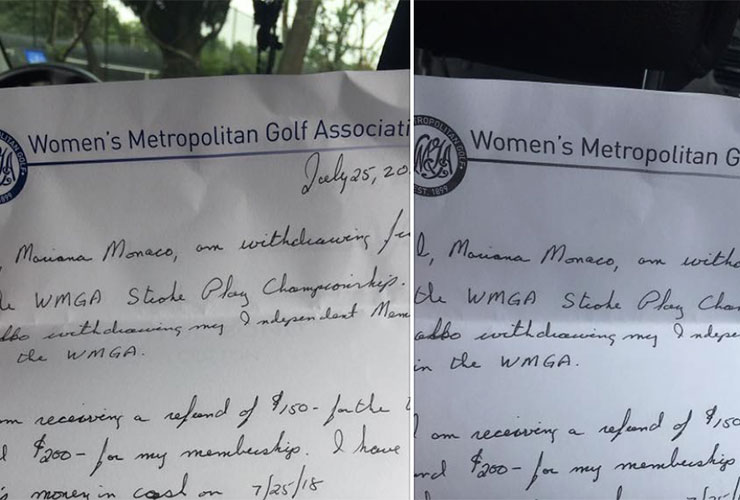 Women's Metropolitan Golf Associati
July 25, 20
, Mariana Monaco, am withdrawing
WMGA Stroke Play Championship.
withdrawing my Independent Mem
the WMGA.
am receiving a refund of $150- for the
$200- for my membership. I have
money in cash on 7/25/18
Women's Metropolitan G
EST. 1899
I, Mariana Monaco, am withd
the WMGA Stroke Play Cham
also withdrawing my Indepe
in the WMGA.
I am receiving a refund of $150
and $200- for my membership